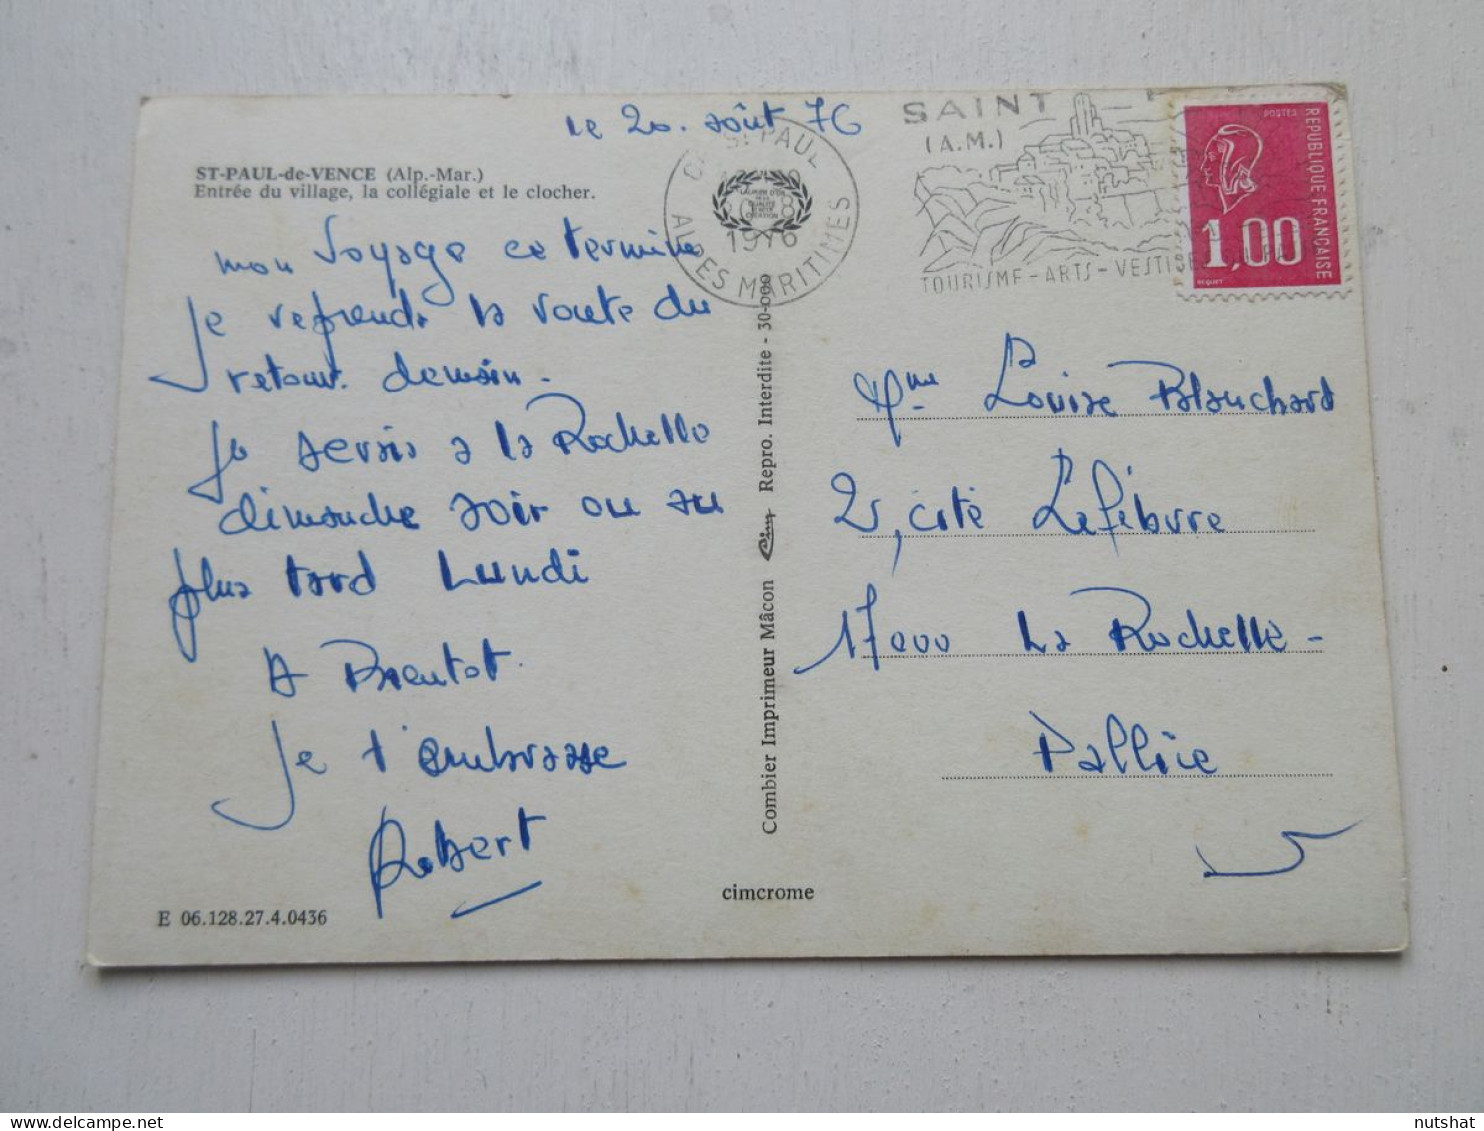 le 20. Août 76
ST-PAUL-de-VENCE (Alp.-Mar.)
Entrée du village, la collégiale et le clocher.
mon voyage ce termine
Je reprends la route du
retour demain.
Je serais a la Rochelle
dimanche soir ou au
plus tard Lundi
A Bientot.
Je t'embrasse
Robert
E 06.128.27.4.0436
cimcrome
Combier Imprimeur Mâcon Cim Repro. Interdite - 30-000
ST PAUL
1976
ALPES MARITIMES
SAINT
(A.M.)
TOURISME - ARTS - VESTIGES
POSTES
REPUBLIQUE FRANÇAISE
1,00
BEQUET
Mme Louise Blanchard
21, cité Lefébvre
17000 La Rochelle -
Pallice
nutshat